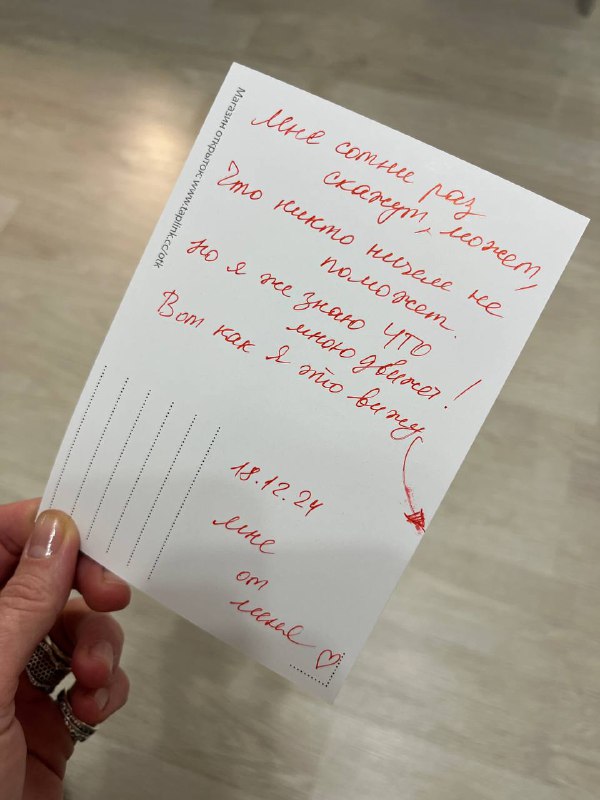 Магазин открыток: www.taplink.cc/otk
Мне сотни раз
скажут, может,
Что никто ничем не
поможет.
Но я же знаю что
мною движет!
Вот как я это вижу
18.12.24
мне
от
меня ♡